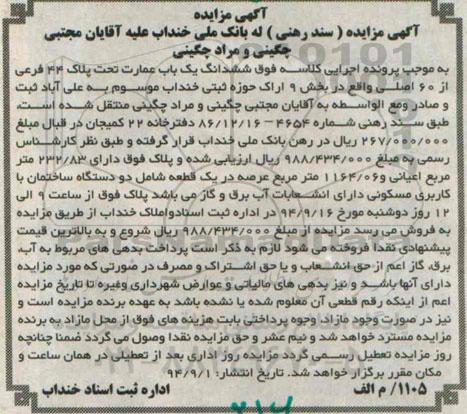 آگهی مزایده
آگهی مزایده ( سند رهنی ) له بانک ملی خنداب علیه آقایان مجتبی
چگینی و مراد چگینی
به موجب پرونده اجرایی کلاسه فوق ششدانگ یک باب عمارت تحت پلاک ۴۴ فرعی
از ۶۰ اصلی واقع در بخش ۹ اراک حوزه ثبتی خنداب موسوم به علی آباد ثبت
و صادر ومع الواسطه به آقایان مجتبی چگینی و مراد چگینی منتقل شده است،
طبق سند رهنی شماره ۴۶۵۴ - ۸۶/۱۲/۱۶ دفترخانه ۲۲ کمیجان در قبال مبلغ
۲۶۷/۰۰۰/۰۰۰ ریال در رهن بانک ملی خنداب قرار گرفته و طبق نظر کارشناس
رسمی به مبلغ ۹۸۸/۴۳۴/۰۰۰ ریال ارزیابی شده و پلاک فوق دارای ۲۳۲/۸۳ متر
مربع اعیانی و ۱۱۶۴/۰۶ متر مربع عرصه در یک قطعه شامل دو دستگاه ساختمان با
کاربری مسکونی دارای انشعابات آب برق و گاز می باشد پلاک فوق از ساعت ۹ الی
۱۲ روز دوشنبه مورخ ۹۴/۹/۱۶ در اداره ثبت اسنادواملاک خنداب از طریق مزایده
به فروش می رسد مزایده از مبلغ ۹۸۸/۴۳۴/۰۰۰ ریال شروع و به بالاترین قیمت
پیشنهادی نقدا فروخته می شود لازم به ذکر است پرداخت بدهی های مربوط به آب،
برق، گاز اعم از حق انشعاب و یا حق اشتراک و مصرف در صورتی که مورد مزایده
دارای آنها باشد و نیز بدهی های مالیاتی و عوارض شهرداری وغیره تا تاریخ مزایده
اعم از اینکه رقم قطعی آن معلوم شده یا نشده باشد به عهده برنده مزایده است و
نیز در صورت وجود مازاد، وجوه پرداختی بابت هزینه های فوق از محل مازاد به برنده
مزایده مسترد خواهد شد و نیم عشر و حق مزایده نقدا وصول می گردد ضمنا چنانچه
روز مزایده تعطیل رسمی گردد مزایده روز اداری بعد از تعطیلی در همان ساعت و
مکان مقرر برگزار خواهد شد. تاریخ انتشار: ۹۴/۹/۱
۱۱۰۵/ م الف
اداره ثبت اسناد خنداب